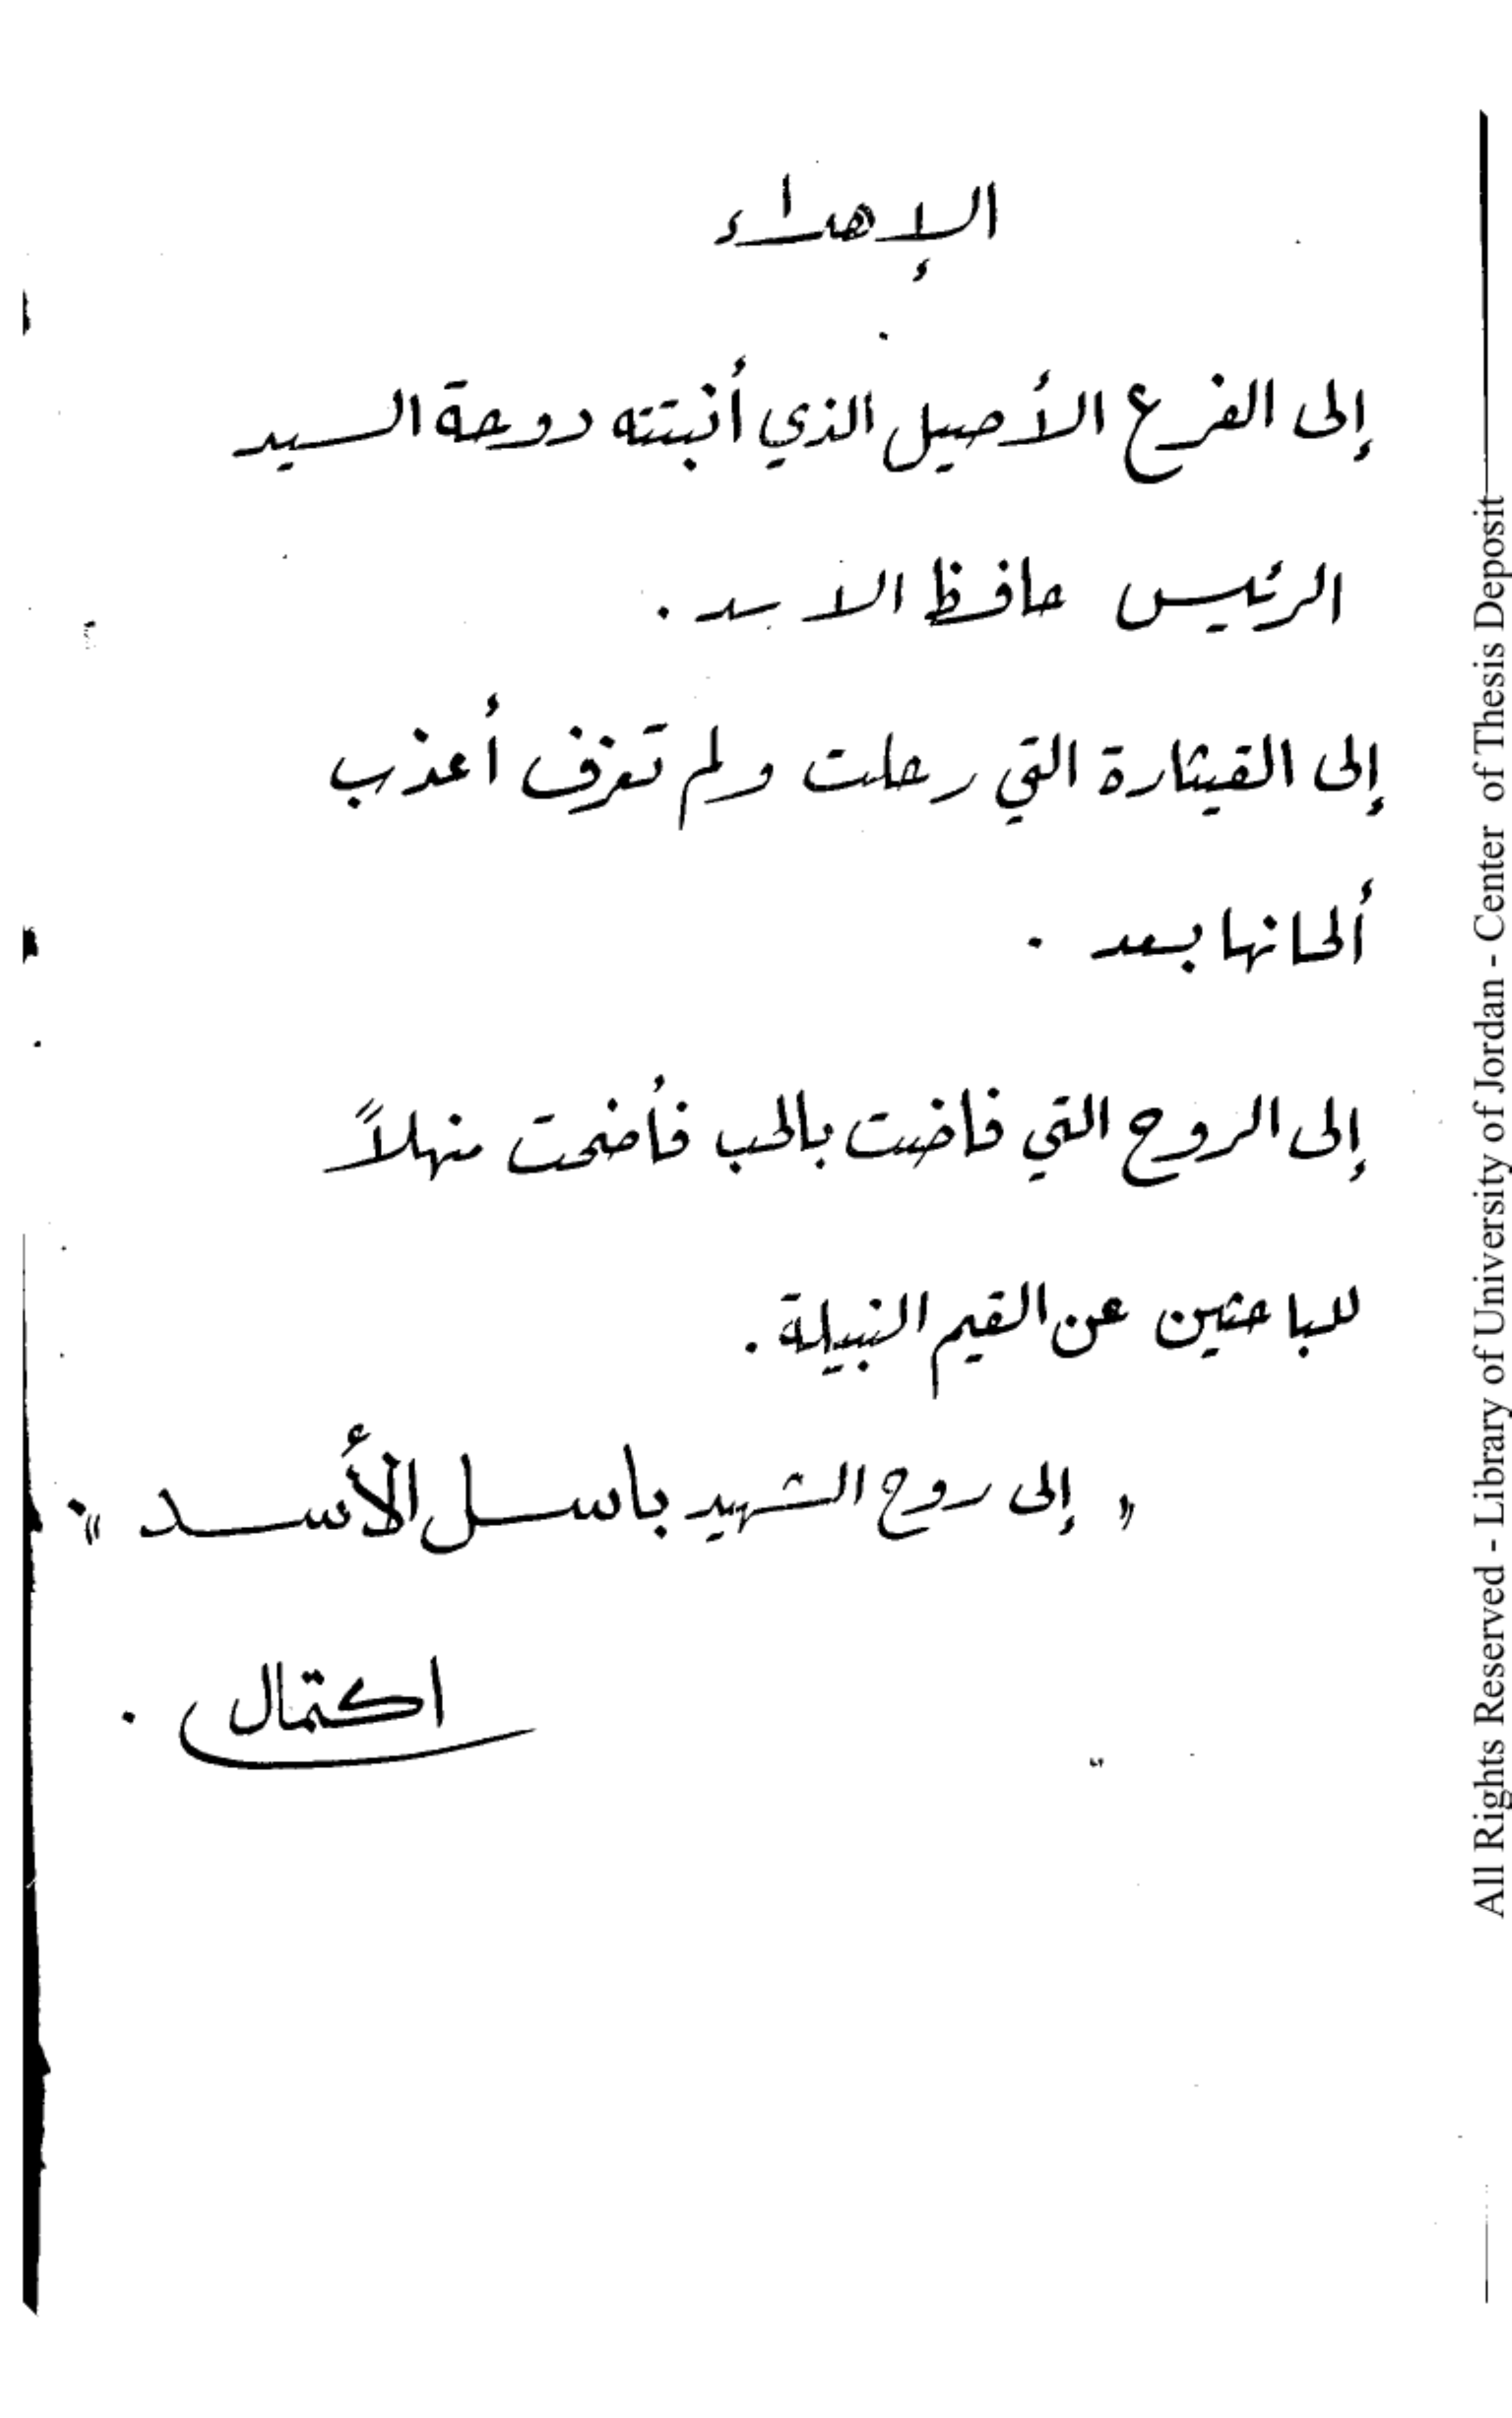 الإهداء
إلى الفرع الأصيل الذي أنبتته دوحة السيد
الرئيس حافظ الاسد .
إلى القيثارة التي رحلت ولم تعزف أعذب
ألحانها بعد .
إلى الروح التي فاضت بالحب فأضحت منهلاً
للباحثين عن القيم النبيلة .
« إلى روح الشهيد باسل الأسد » .
اكتمال .
All Rights Reserved - Library of University of Jordan - Center of Thesis Deposit